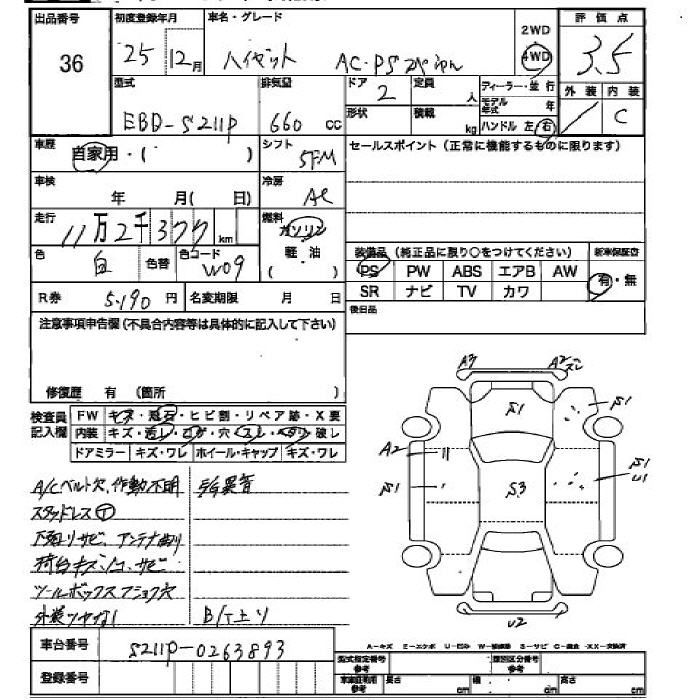 出品番号 初度登録年月 車名・グレード 評価点
36 25 12月 ハイゼット AC・PS 2WD 4WD 3.5
型式 排気量 ドア 定員 ディーラー・並行 外装 内装
EBD-S211P 660 cc 2 人 モデル年式 年 C
形状 積載 kg ハンドル 左 右
車歴 自家用・( ) シフト 5FM セールスポイント(正常に機能するものに限ります)
車検 年 月( 日) 冷房 AC
走行 11万2千377 km 燃料 ガソリン
色 白 色替 色コード W09 軽油 ( )
装備品(純正品に限り○をつけてください) 新車保証書
PS PW ABS エアB AW 有・無
SR ナビ TV カワ
R券 5,190 円 名変期限 月 日 後日品
注意事項申告欄(不具合内容等は具体的に記入して下さい)
修復歴 有 (箇所 )
検査員記入欄 FW キズ・飛石・ヒビ割・リペア跡・X要
内装 キズ・汚レ・コゲ・穴・スレ・ヘタリ・破レ
ドアミラー キズ・ワレ ホイール・キャップ キズ・ワレ
A/Cベルト欠、作動不明
異音
スタッドレス
下廻リサビ、アンテナ曲リ
荷台キズ凹サビ
ツールボックス
穴
外装ツヤなし
A3 A2
S1 S1
A2 S1 S3 S1 U1
U2
車台番号 S211P-0263893
登録番号
A=キズ E=エクボ U=凹ミ W=補修跡 S=サビ C=腐食 XX=交換済
型式指定番号 参考 類別区分番号 参考
車庫証明用 参考 長さ cm 幅 cm 高さ cm